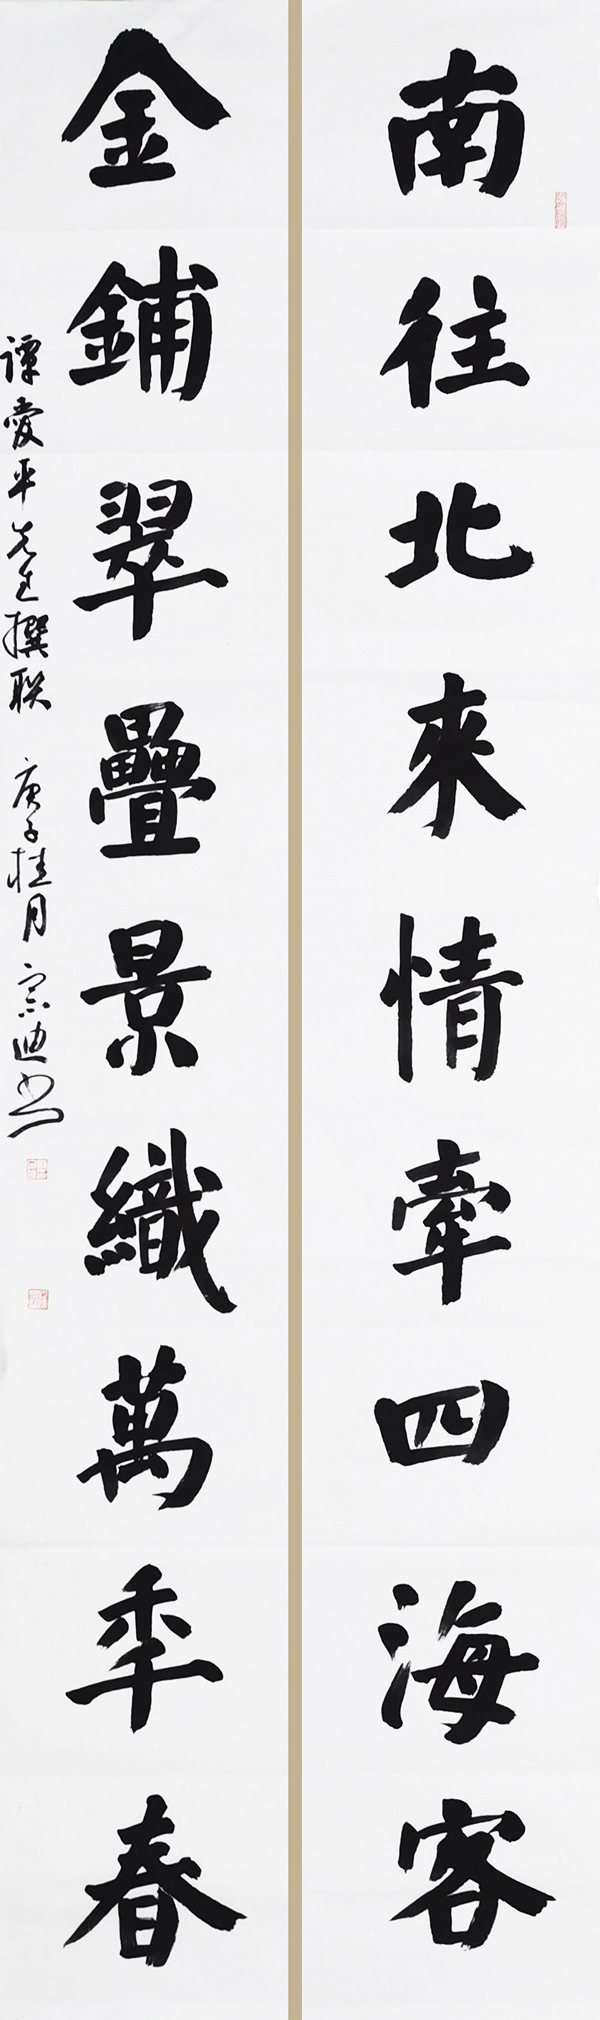 南往北來情牽四海客
金鋪翠疊景織萬秊春
谭愛平先生撰联 庚子桂月 宗迪书